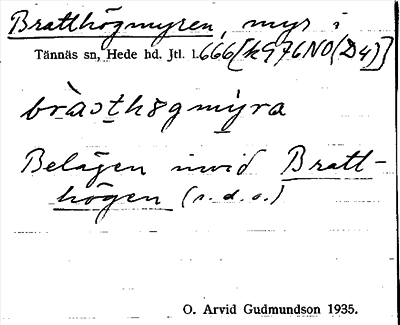 Bratthögmyren, myr i
Tännäs sn, Hede hd. Jtl. l. 666 [K976NO(D4)]
bràɔthɞgmỳra
Belägen invid Bratt-
högen (s. d. o.)
O. Arvid Gudmundson 1935.